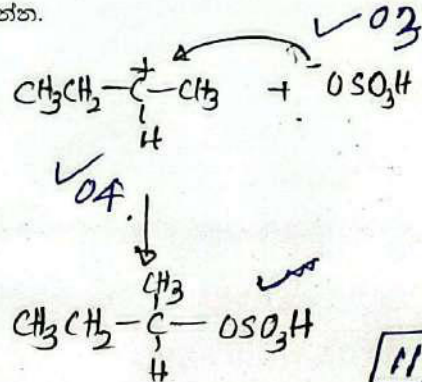 න්න.
✓03
CH₃CH₂-C⁺-CH₃ + ⁻OSO₃H
H
✓04.
CH₃
CH₃CH₂-C-OSO₃H
H
11